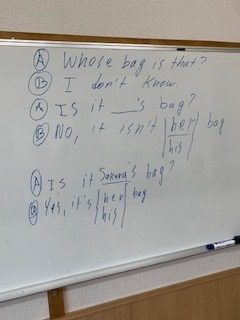 Ⓐ Whose bag is that?
Ⓑ I don't know.
Ⓐ Is it ___'s bag?
Ⓑ No, it isn't her bag
his
Ⓐ Is it Sakura's bag?
Ⓑ Yes, it's her bag.
his